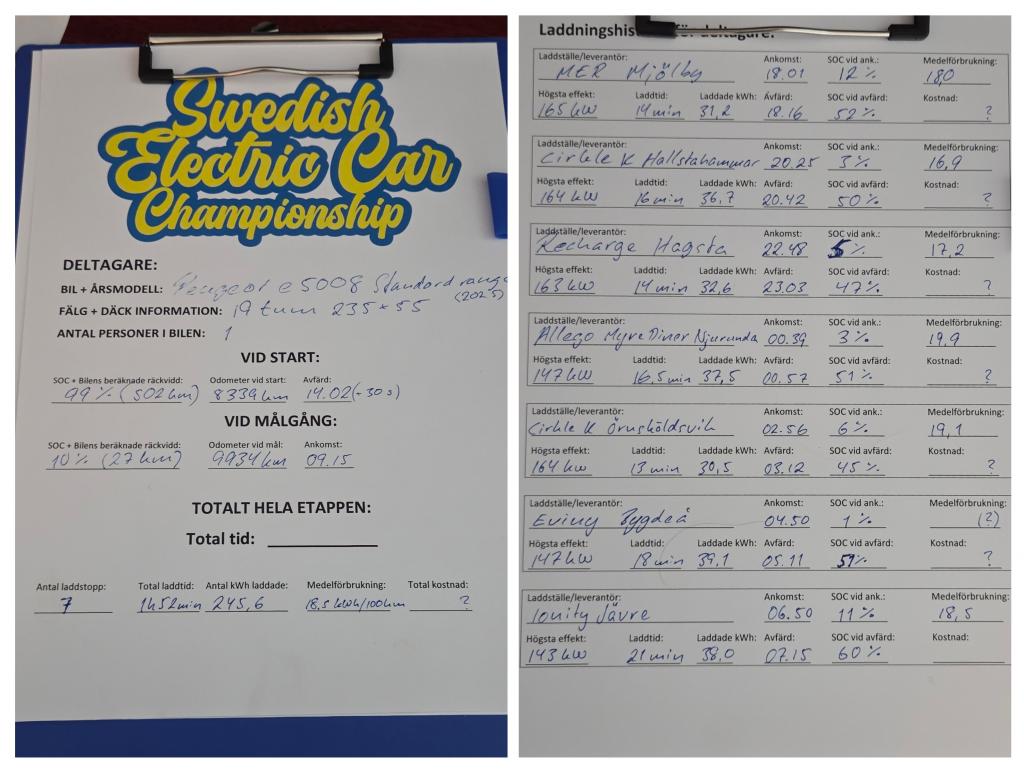 Swedish
Electric Car
Championship
DELTAGARE:
BIL + ÅRSMODELL: Peugeot e 5008 Standard range
(2025)
FÄLG + DÄCK INFORMATION: 19 tum 235*55
ANTAL PERSONER I BILEN: 1
VID START:
SOC + Bilens beräknade räckvidd: Odometer vid start: Avfärd:
99% (502 km) 8339 km 14.02 (-30s)
VID MÅLGÅNG:
SOC + Bilens beräknade räckvidd: Odometer vid mål: Ankomst:
10% (27 km) 9934 km 09.15
TOTALT HELA ETAPPEN:
Total tid:
Antal laddstopp: Total laddtid: Antal kWh laddade: Medelförbrukning: Total kostnad:
7 1h52min 245,6 18,5 kWh/100km ?
Laddningshis för deltagare:
Laddställe/leverantör: Ankomst: SOC vid ank.: Medelförbrukning:
MER Mjölby 18.01 12% 18,0
Högsta effekt: Laddtid: Laddade kWh: Avfärd: SOC vid avfärd: Kostnad:
165 kW 14 min 31,2 18.16 52% ?
Laddställe/leverantör: Ankomst: SOC vid ank.: Medelförbrukning:
Cirkle K Hallstahammar 20.25 3% 16,9
Högsta effekt: Laddtid: Laddade kWh: Avfärd: SOC vid avfärd: Kostnad:
164 kW 16 min 36,7 20.42 50% ?
Laddställe/leverantör: Ankomst: SOC vid ank.: Medelförbrukning:
Recharge Hagsta 22.48 % 17,2
Högsta effekt: Laddtid: Laddade kWh: Avfärd: SOC vid avfärd: Kostnad:
163 kW 14 min 32,6 23.03 47% ?
Laddställe/leverantör: Ankomst: SOC vid ank.: Medelförbrukning:
Allego Myre Diner Njurunda 00.39 3% 19,9
Högsta effekt: Laddtid: Laddade kWh: Avfärd: SOC vid avfärd: Kostnad:
147 kW 16,5 min 37,5 00.57 51% ?
Laddställe/leverantör: Ankomst: SOC vid ank.: Medelförbrukning:
Cirkle K Örnsköldsvik 02.56 6% 19,1
Högsta effekt: Laddtid: Laddade kWh: Avfärd: SOC vid avfärd: Kostnad:
164 kW 13 min 30,5 03.12 45% ?
Laddställe/leverantör: Ankomst: SOC vid ank.: Medelförbrukning:
Eviny Bygdeå 04.50 1% (?)
Högsta effekt: Laddtid: Laddade kWh: Avfärd: SOC vid avfärd: Kostnad:
147 kW 18 min 39,1 05.11 51% ?
Laddställe/leverantör: Ankomst: SOC vid ank.: Medelförbrukning:
Ionity Jävre 06.50 11% 18,5
Högsta effekt: Laddtid: Laddade kWh: Avfärd: SOC vid avfärd: Kostnad:
143 kW 21 min 38,0 07.15 60%